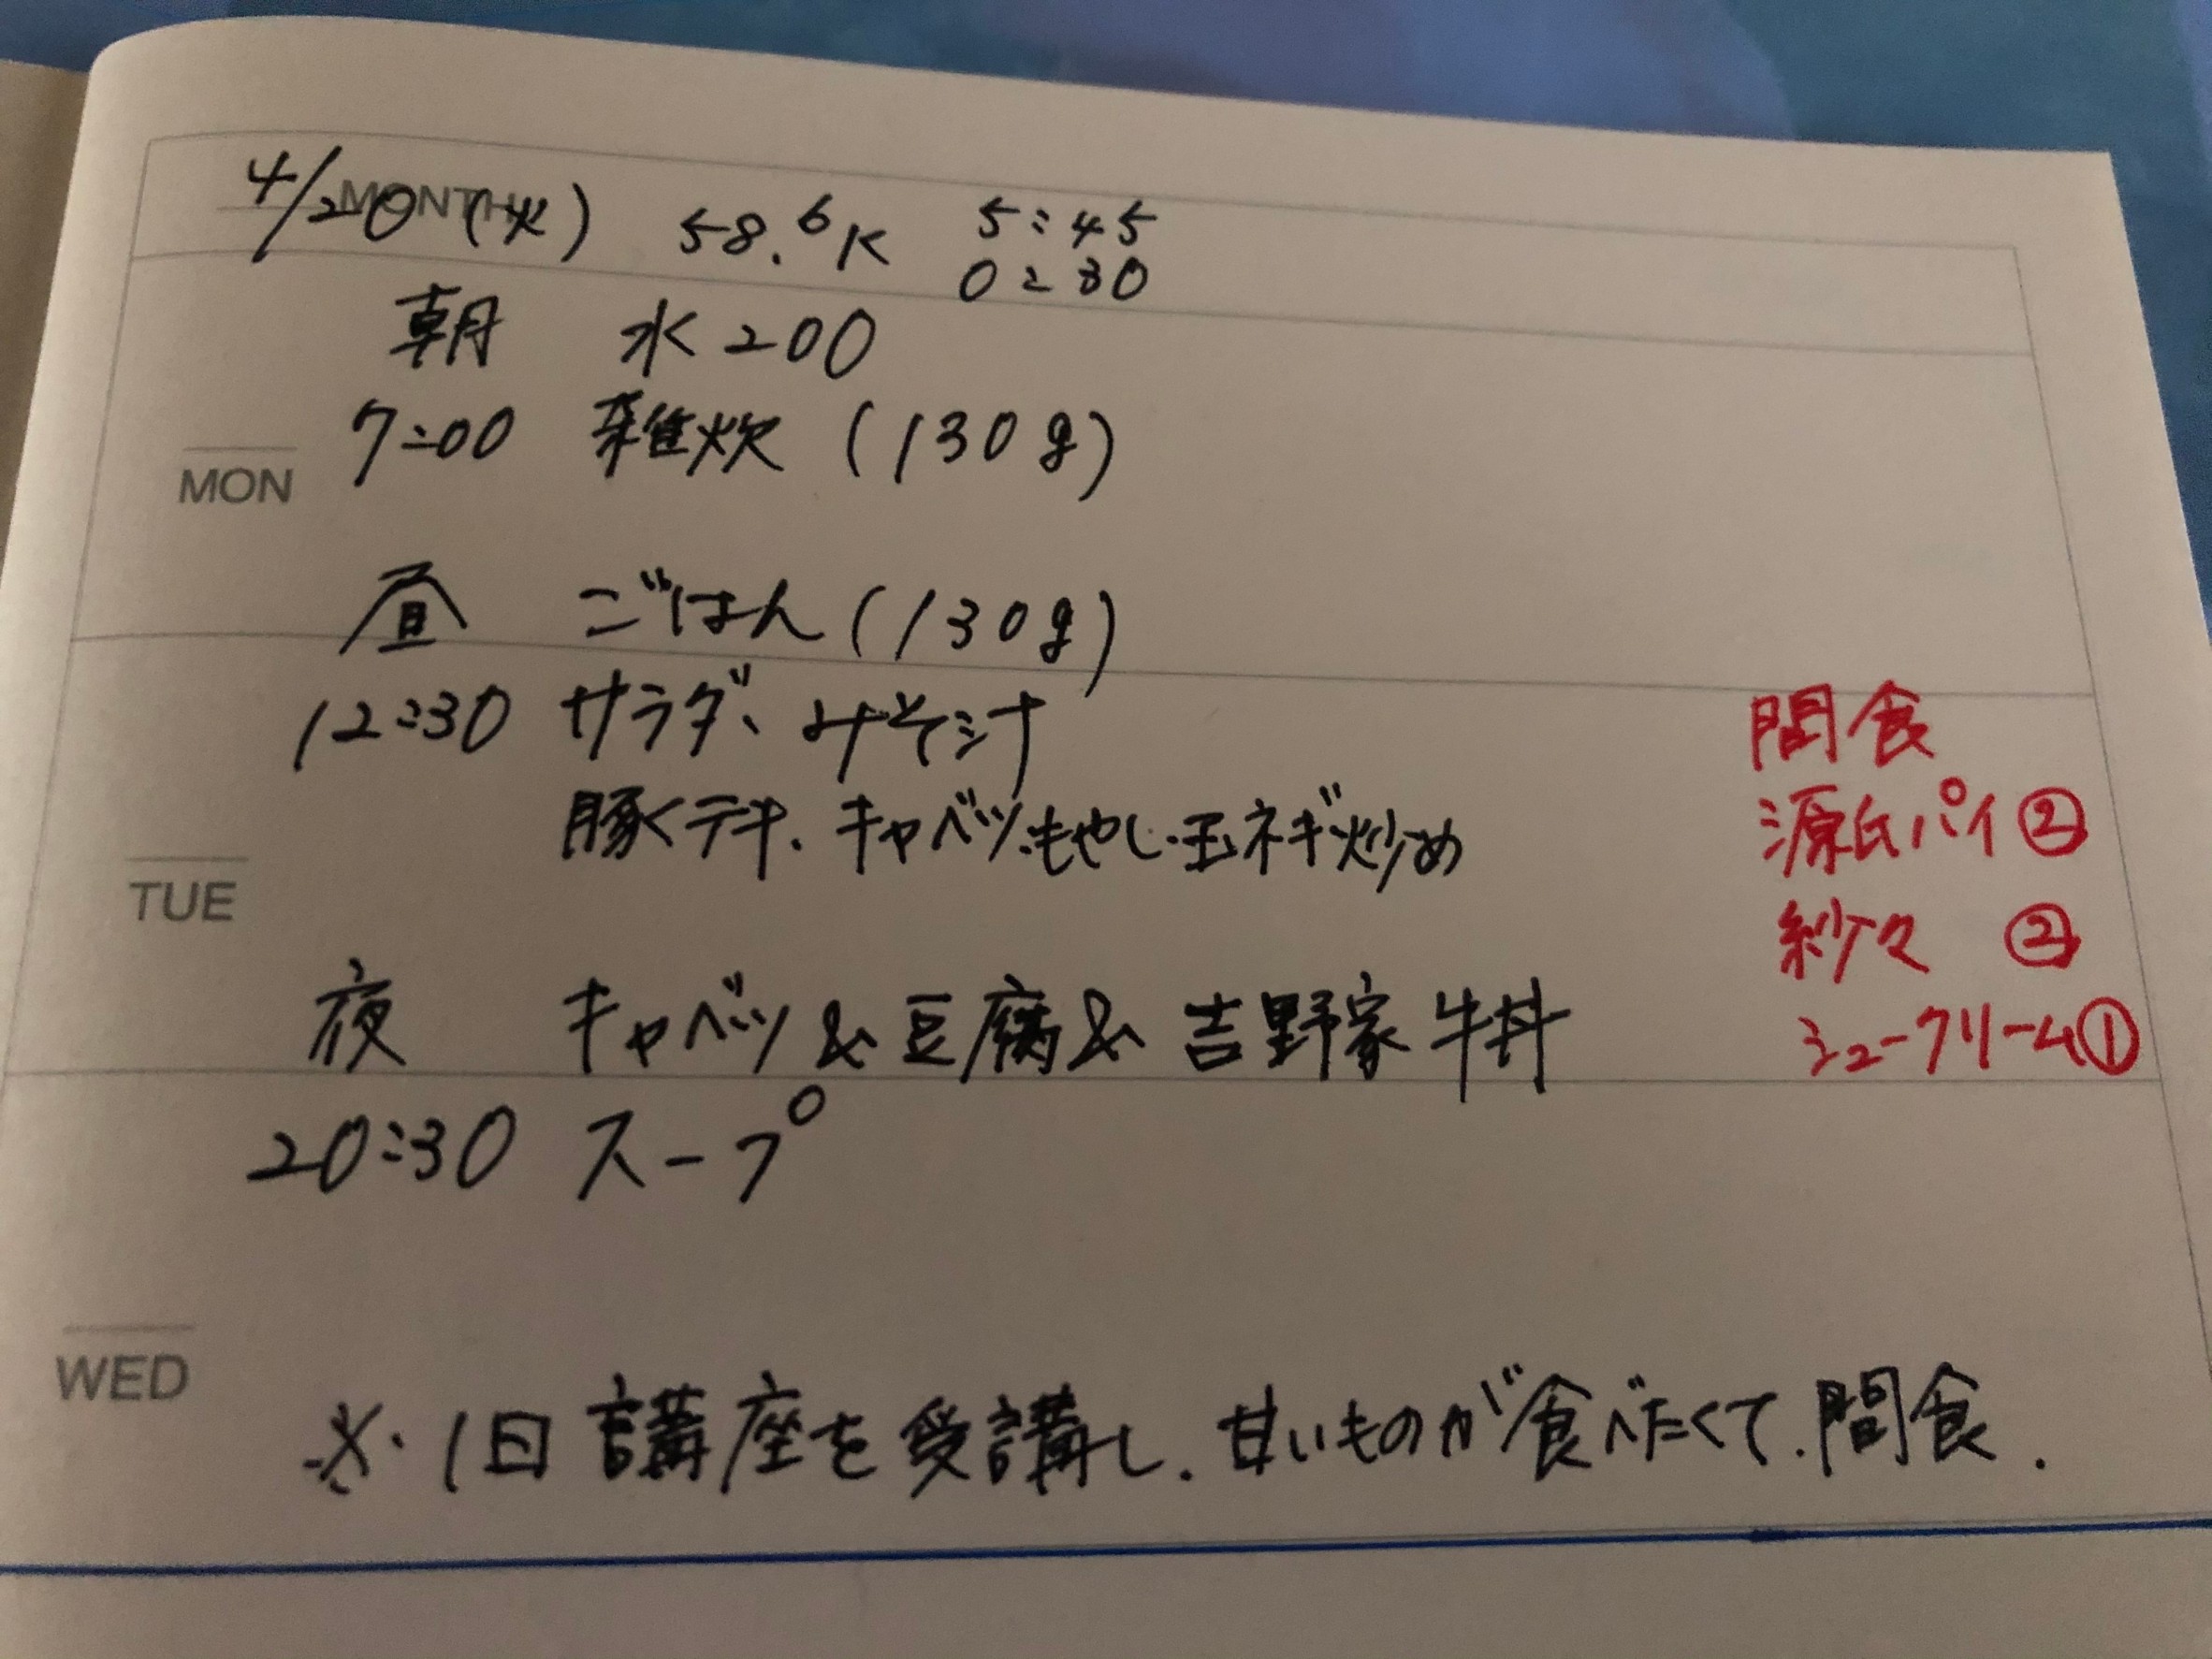 MONTH
4/20(火) 58.6K 5:45
0:30
朝 水200
7:00 雑炊(130g)
MON
昼 ごはん(130g)
12:30 サラダ、みそ汁
豚テキ、キャベツ・もやし・玉ネギ炒め
TUE
夜 キャベツ&豆腐&吉野家牛丼
20:30 スープ
間食
源氏パイ②
紗々 ②
シュークリーム①
WED
※・1日講座を受講し、甘いものが食べたくて、間食.